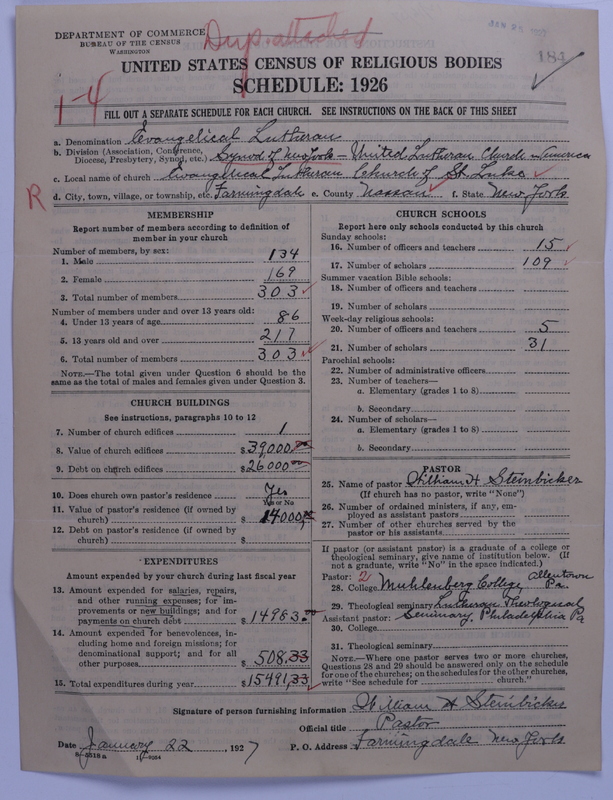 DEPARTMENT OF COMMERCE
BUREAU OF THE CENSUS
WASHINGTON
Dup. attached
184
1-4
UNITED STATES CENSUS OF RELIGIOUS BODIES
SCHEDULE: 1926
FILL OUT A SEPARATE SCHEDULE FOR EACH CHURCH. SEE INSTRUCTIONS ON THE BACK OF THIS SHEET
a. Denomination Evangelical Lutheran
b. Division (Association, Conference, Diocese, Presbytery, Synod, etc.) Synod of New York - United Lutheran Church in America
c. Local name of church Evangelical Lutheran Church of St. Luke
R
d. City, town, village, or township, etc. Farmingdale e. County Nassau f. State New York
MEMBERSHIP
Report number of members according to definition of
member in your church
Number of members, by sex:
1. Male 134
2. Female 169
3. Total number of members 303
Number of members under and over 13 years old:
4. Under 13 years of age 86
5. 13 years old and over 217
6. Total number of members 303
NOTE.—The total given under Question 6 should be
same as the total of males and females given under Question 3.
CHURCH BUILDINGS
See instructions, paragraphs 10 to 12
7. Number of church edifices 1
8. Value of church edifices $39000.00
9. Debt on church edifices $26000.00
10. Does church own pastor's residence Yes
Yes or No
11. Value of pastor's residence (if owned by
church) $14000.00
12. Debt on pastor's residence (if owned by
church) $
EXPENDITURES
Amount expended by your church during last fiscal year
13. Amount expended for salaries, repairs,
and other running expenses; for im-
provements or new buildings; and for
payments on church debt $14983.00
14. Amount expended for benevolences, in-
cluding home and foreign missions; for
denominational support; and for all
other purposes $508.33
15. Total expenditures during year $15491.33
CHURCH SCHOOLS
Report here only schools conducted by this church
Sunday schools:
16. Number of officers and teachers 15
17. Number of scholars 109
Summer vacation Bible schools:
18. Number of officers and teachers
19. Number of scholars
Week-day religious schools:
20. Number of officers and teachers 5
21. Number of scholars 31
Parochial schools:
22. Number of administrative officers
23. Number of teachers—
a. Elementary (grades 1 to 8)
b. Secondary
24. Number of scholars—
a. Elementary (grades 1 to 8)
b. Secondary
PASTOR
25. Name of pastor William H Steinbicker
(If church has no pastor, write "None")
26. Number of ordained ministers, if any, em-
ployed as assistant pastors
27. Number of other churches served by the
pastor or his assistants
If pastor (or assistant pastor) is a graduate of a college or
theological seminary, give name of institution below. (If
not a graduate, write "No" in the space indicated.)
Pastor: 2
28. College Muhlenberg College, Allentown Pa.
29. Theological seminary Lutheran Theological
Assistant pastor: Seminary, Philadelphia Pa
30. College
31. Theological seminary
NOTE.—Where one pastor serves two or more churches,
Questions 28 and 29 should be answered only on the schedule
for one of the churches; on the schedules for the other churches,
write "See schedule for church."
Signature of person furnishing information William H Steinbicker
Official title Pastor
Date January 22, 1927 P. O. Address Farmingdale New York